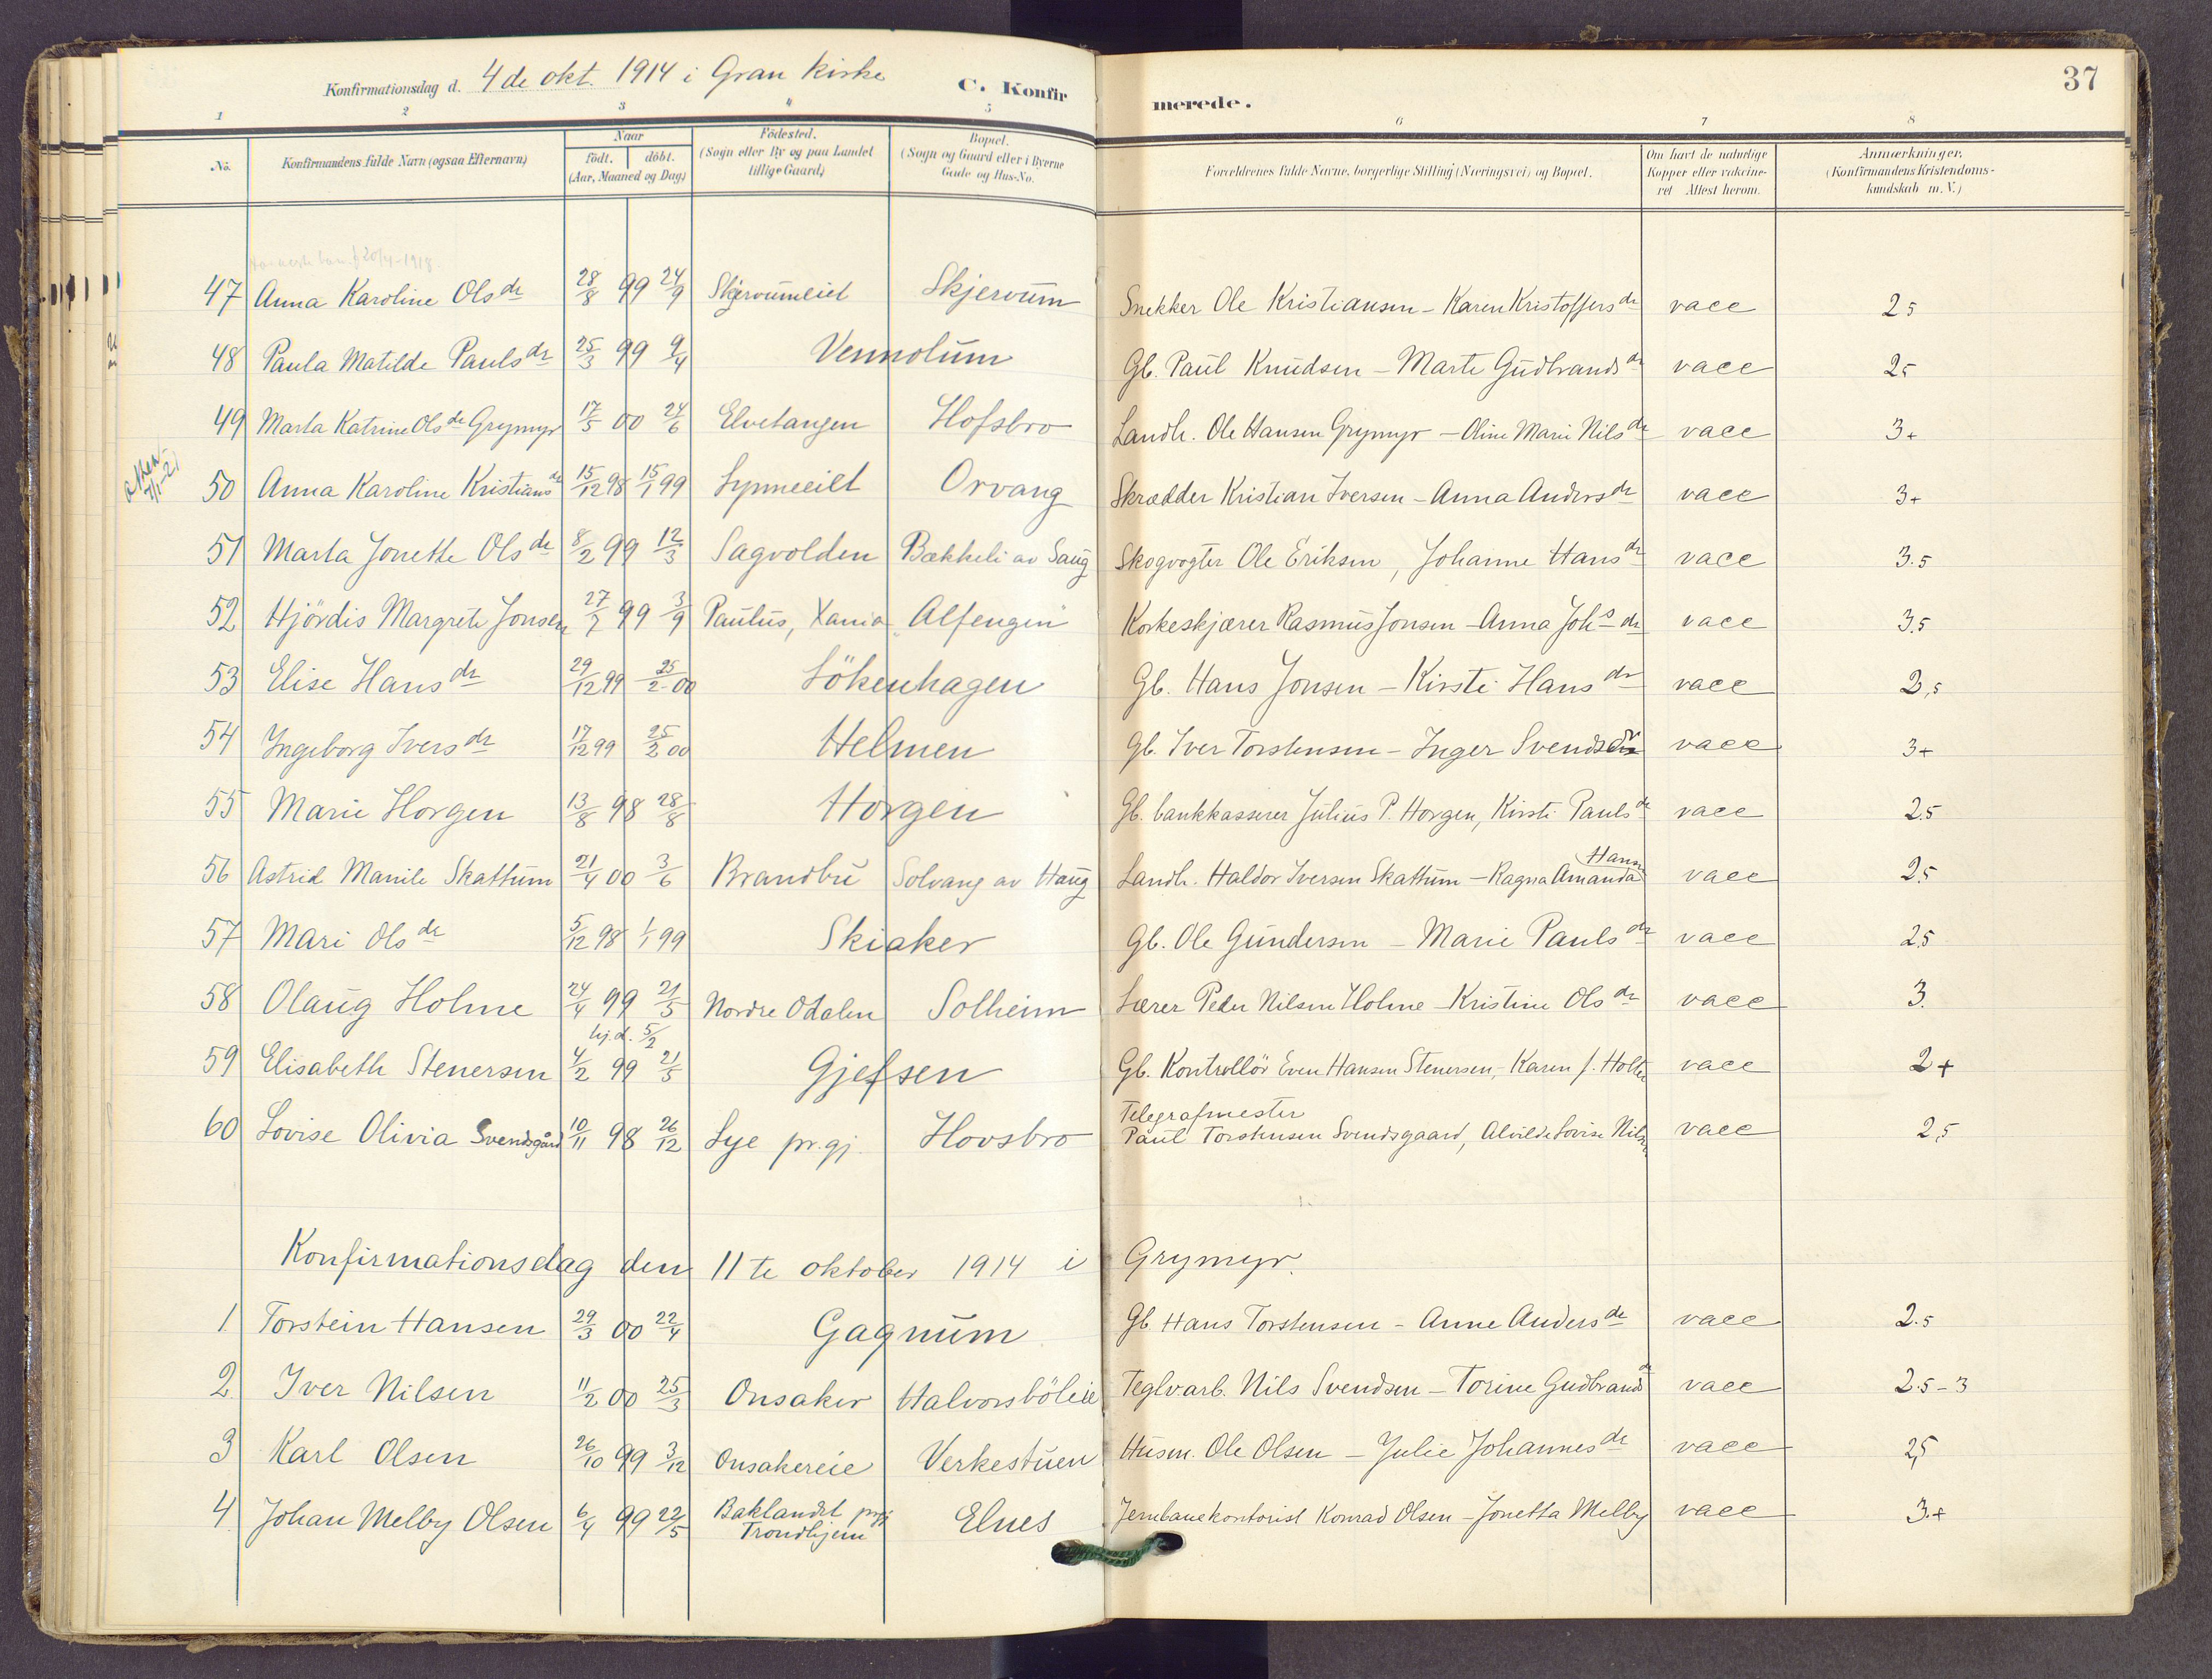 37
Konfirmationsdag d. 4de okt. 1914 i Gran kirke C. Konfirmerede.
1 2 3 4 5 6 7 8
No. Konfirmandens fulde Navn (ogsaa Efternavn) Naar født. døbt. (Aar, Maaned og Dag) Födested. (Sogn eller By og paa Landet tillige Gaard) Bopæl. (Sogn og Gaard eller i Byerne Gade og Hus-No. Forældrenes fulde Navne, borgerlige Stilling (Næringsvei) og Bopæl. Om havt de naturlige Kopper eller vaccineret Attest herom. Anmærkninger. (Konfirmandens Kristendomskundskab m. V.)
20/4-1918
47 Anna Karoline Olsdr 28/8 99 24/9 Skjervumeiet Skjervum Snekker Ole Kristiansen - Karen Kristoffersdr vacc 2 5
48 Paula Matilde Paulsdr 25/3 99 9/4 Vennolum Gb. Paul Knudsen - Marte Gudbrandsdr vacc 25
49 Marta Katrine Olsdr Grymyr 17/5 00 24/6 Elvetangen Hofsbro Landh. Ole Hansen Grymyr - Oline Marie Nilsdr vacc 3+
50 Anna Karoline Kristiansdr 15/12 98 15/1 99 Lynneeiet Orvang Skrædder Kristian Iversen - Anna Andersdr vacc 3+
51 Marta Jonette Olsdr 8/2 99 12/3 Sagvolden Bækkeli av Saug Skogvogter Ole Eriksen, Johanne Hansdr vacc 3.5
52 Hjördis Margrete Jonsen 27/7 99 3/9 Paulus, Xania Alfengen Korkeskjærer Rasmus Jonsen - Anna Johs dr vacc 3.5
53 Elise Hansdr 29/12 99 25/2 00 Lökenhagen Gb. Hans Jonsen - Kirsti Hansdr vacc 2,5
54 Ingeborg Iversdr 17/12 99 25/2 00 Helmen Gb. Iver Torstensen - Inger Svendsdr vacc 3+
55 Marie Horgen 13/8 98 28/8 Horgen Gb. bankkasserer Julius P. Horgen, Kirsti Paulsdr vacc 2.5
56 Astrid Marille Skattum 21/4 00 3/6 Brandbu Solvang av Haug Landh. Haldor Iversen Skattum - Ragna Amanda Hansen vacc 2.5
57 Mari Olsdr 5/12 98 1/1 99 Skiaker Gb. Ole Gundersen - Marie Paulsdr vacc 2.5
58 Olaug Holme 24/4 99 21/5 Nordre Odalen Solheim Lærer Peder Nilsen Holme - Kristine Olsdr vacc 3.
hj.d. 5/2
59 Elisabeth Stenersen 4/2 99 21/5 Gjefsen Gb. Kontrollör Even Hansen Stenersen, - Karen f. Holter vacc 2+
60 Lovise Olivia Svendsgård 10/11 98 26/12 Lye pr.gj. Hovsbro Telegrafmester Paul Torstensen Svendsgaard, Alvilde Lovise Nilsen vacc 2,5
Konfirmationsdag den 11te oktober 1914 i Grymyr.
1. Torstein Hansen 29/3 00 22/4 Gagnum Gb. Hans Torstensen - Anne Andersdr vacc 2.5
2 Iver Nilsen 11/2 00 25/3 Onsaker Halvorsböleie Teglv.arb. Nils Svendsen - Torine Gudbrandsdr vacc 2.5-3
3 Karl Olsen 26/10 99 3/12 Onsakereie Verkestuen Husm. Ole Olsen - Julie Johannesdr vacc 2,5
4. Johan Melby Olsen 6/4 99 22/5 Baklandet prgj Trondhjem Elnes Jernbanekontorist Konrad Olsen - Jonetta Melby vacc 3.+